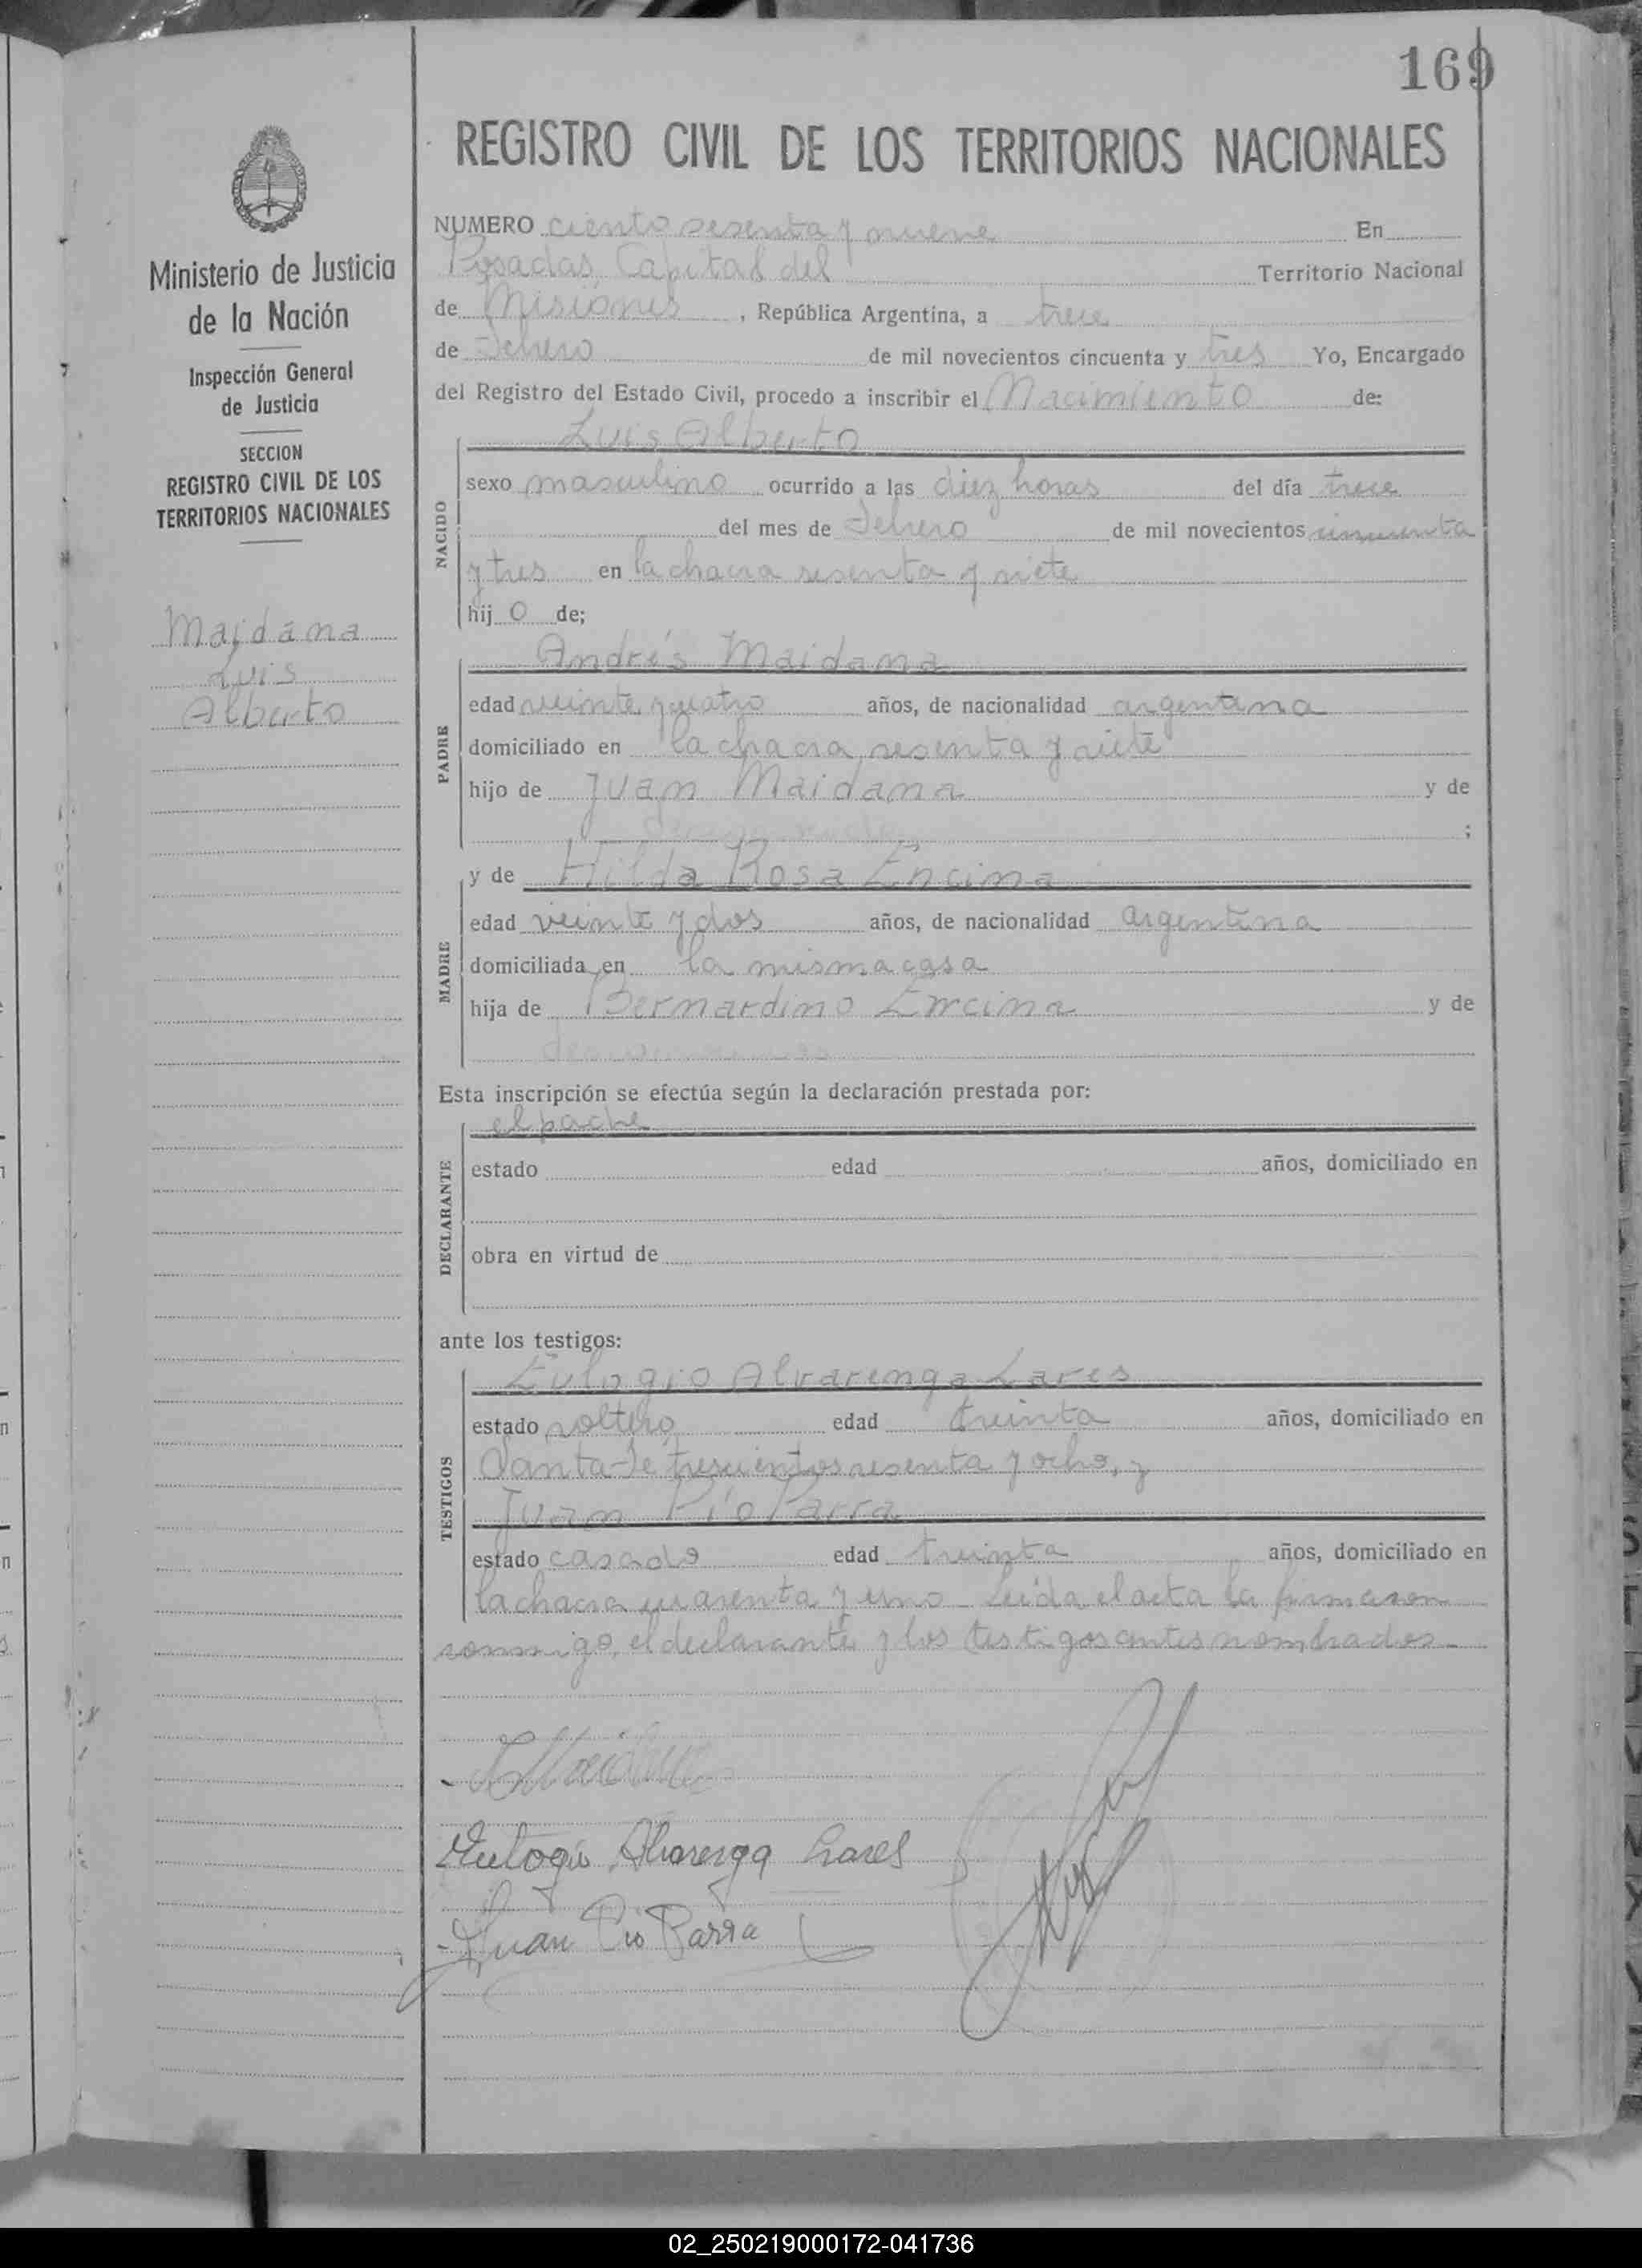 169
REGISTRO CIVIL DE LOS TERRITORIOS NACIONALES
Ministerio de Justicia
de la Nación
Inspección General
de Justicia
SECCION
REGISTRO CIVIL DE LOS
TERRITORIOS NACIONALES
Maidana
Luis
Alberto
NUMERO ciento sesenta y nueve En
Posadas Capital del Territorio Nacional
de Misiones, República Argentina, a trece
de Febrero de mil novecientos cincuenta y tres Yo, Encargado
del Registro del Estado Civil, procedo a inscribir el Nacimiento de:
NACIDO
Luis Alberto
sexo masculino ocurrido a las diez horas del día trece
del mes de Febrero de mil novecientos cincuenta
y tres en la chacra sesenta y siete
hij o de;
PADRE
Andrés Maidana
edad veinte y cuatro años, de nacionalidad argentina
domiciliado en la chacra sesenta y siete
hijo de Juan Maidana y de
;
MADRE
y de Hilda Rosa Encina
edad veinte y dos años, de nacionalidad argentina
domiciliada en la misma casa
hija de Bernardino Encina y de
Esta inscripción se efectúa según la declaración prestada por:
DECLARANTE
el padre
estado edad años, domiciliado en
obra en virtud de
ante los testigos:
TESTIGOS
Eulogio Alvarenga Lares
estado soltero edad treinta años, domiciliado en
Santa-Fé trescientos sesenta y ocho, y
Juan Pío Parra
estado casado edad treinta años, domiciliado en
la chacra cuarenta y uno. Leída el acta la firmaron
conmigo, el declarante y los testigos antes nombrados.
Eulogio Alvarenga Lares
Juan Pio Parra
02_250219000172-041736